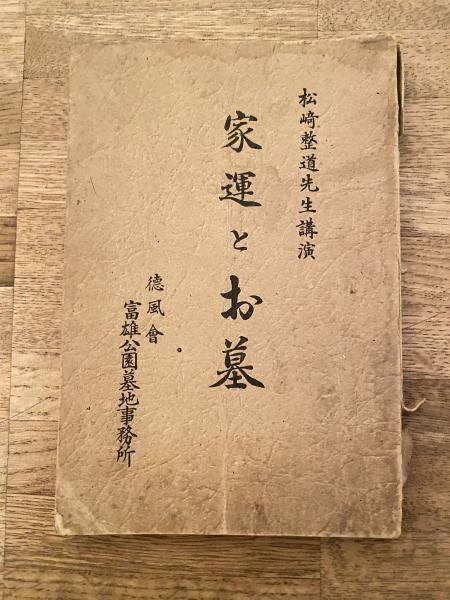 松﨑整道先生講演
家運とお墓
德風會
富雄公園墓地事務所